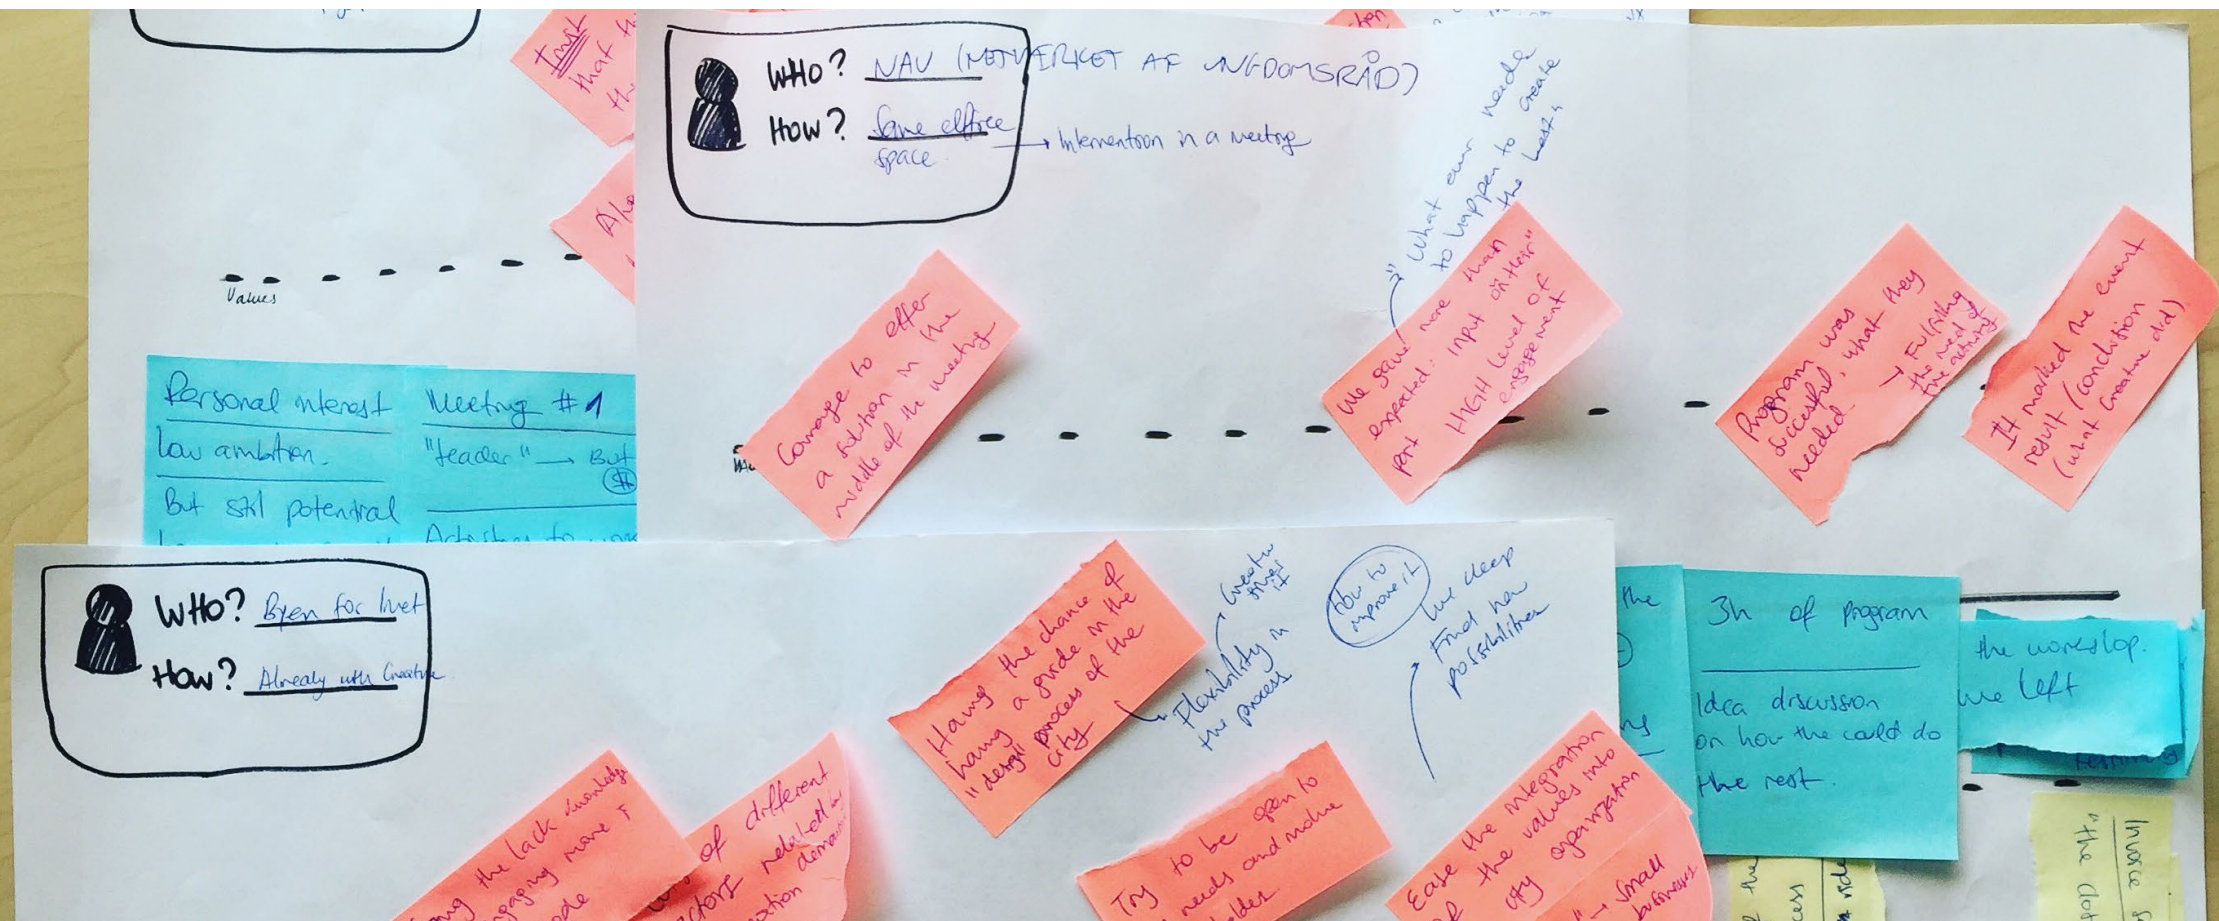 trust
that
WHO? NAV (NETVÆRKET AF UNGDOMSRÅD)
HOW? Same office
space
→ Intervention in a meeting
"What our needs
to happen to create
the best"
Values
Courage to offer
a solution in the
middle of the meeting
We gave more than
expected: input on their
part HIGH level of
engagement
Program was
succesful, what they
needed.
→ Fulfilling
the need of
the activity
It marked the event
result / condition
(what Creature did)
Personal interest
Low ambition.
But still potential
Meeting #1
"Header" → But
$
WHO? Byen for livet
HOW? Already with Creature
Having the chance of
having a guide in the
"design" process of the
city
Flexibility in
the process
How to
improve it
We keep
Find new
possibilities
the lack
more
of different
Try to be open to
needs and
Ease the integration
of the values into
organization
→ Small
businesses
the
3h of program
Idea discussion
on how the could do
the rest.
the workshop.
we left
the
Invoice
"the